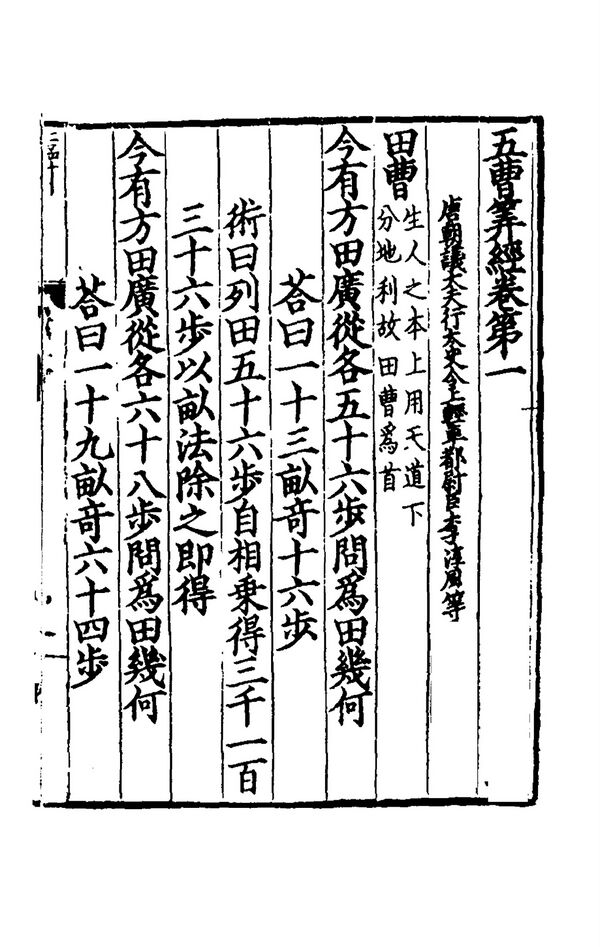 五曹筭經卷第一
唐朝議大夫行太史令上輕車都尉臣李淳風等
田曹
生人之本上用天道下
分地利故田曹爲首
今有方田廣從各五十六步問爲田幾何
荅曰一十三畝竒十六步
術曰列田五十六步自相乗得三千一百
三十六步以畝法除之即得
今有方田廣從各六十八步問爲田幾何
荅曰一十九畝竒六十四步